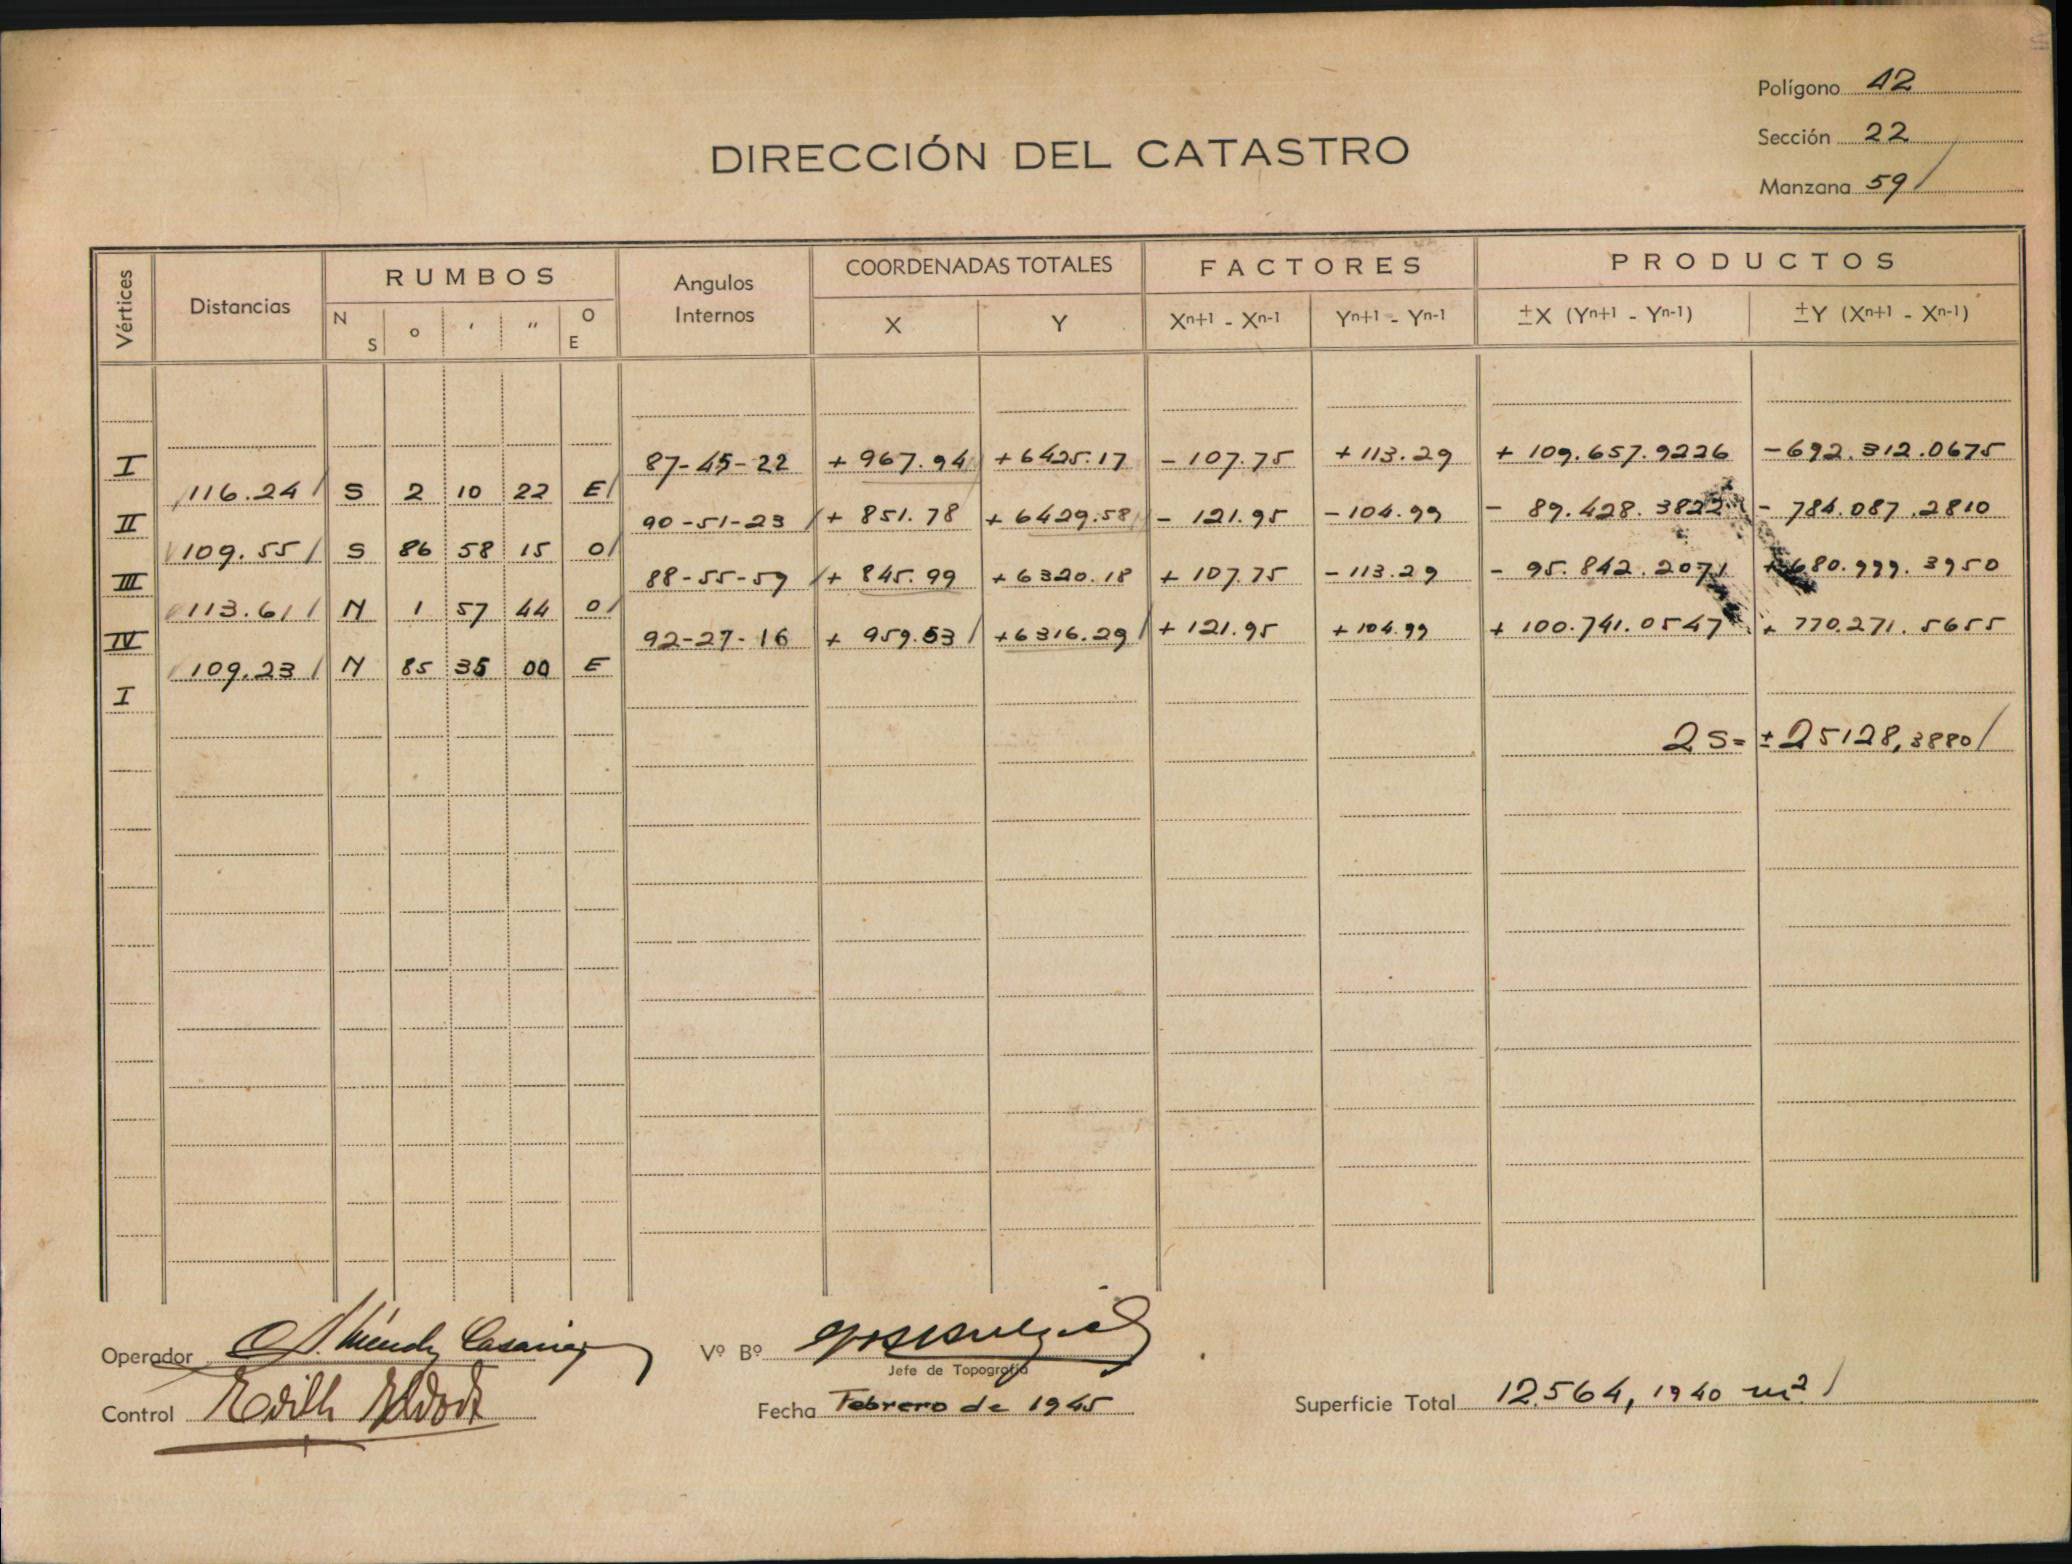 Polígono 42
Sección 22
Manzana 59/
DIRECCIÓN DEL CATASTRO
Vértices Distancias RUMBOS Angulos Internos COORDENADAS TOTALES FACTORES PRODUCTOS
N S o ' " O E X Y Xn+1 - Xn-1 Yn+1 - Yn-1 ±X (Yn+1 - Yn-1) ±Y (Xn+1 - Xn-1)
I 87-45-22 + 967.94 + 6425.17 - 107.75 + 113.29 + 109.657.9226 - 692.312.0675
116.24 S 2 10 22 E
II 90-51-23 + 851.78 + 6429.58 - 121.95 - 104.99 - 89.428.3822 - 784.087.2810
109.55 S 86 58 15 O
III 88-55-59 + 845.99 + 6320.18 + 107.75 - 113.29 - 95.842.2071 + 680.999.3950
113.61 N 1 57 44 O
IV 92-27-16 + 959.53 + 6316.29 + 121.95 + 104.99 + 100.741.0547 + 770.271.5655
109.23 N 85 35 00 E
I
2S= ± 25128,3880
Operador
Vº Bº
Jefe de Topografía
Control
Fecha Febrero de 1945
Superficie Total 12.564,1940 m²